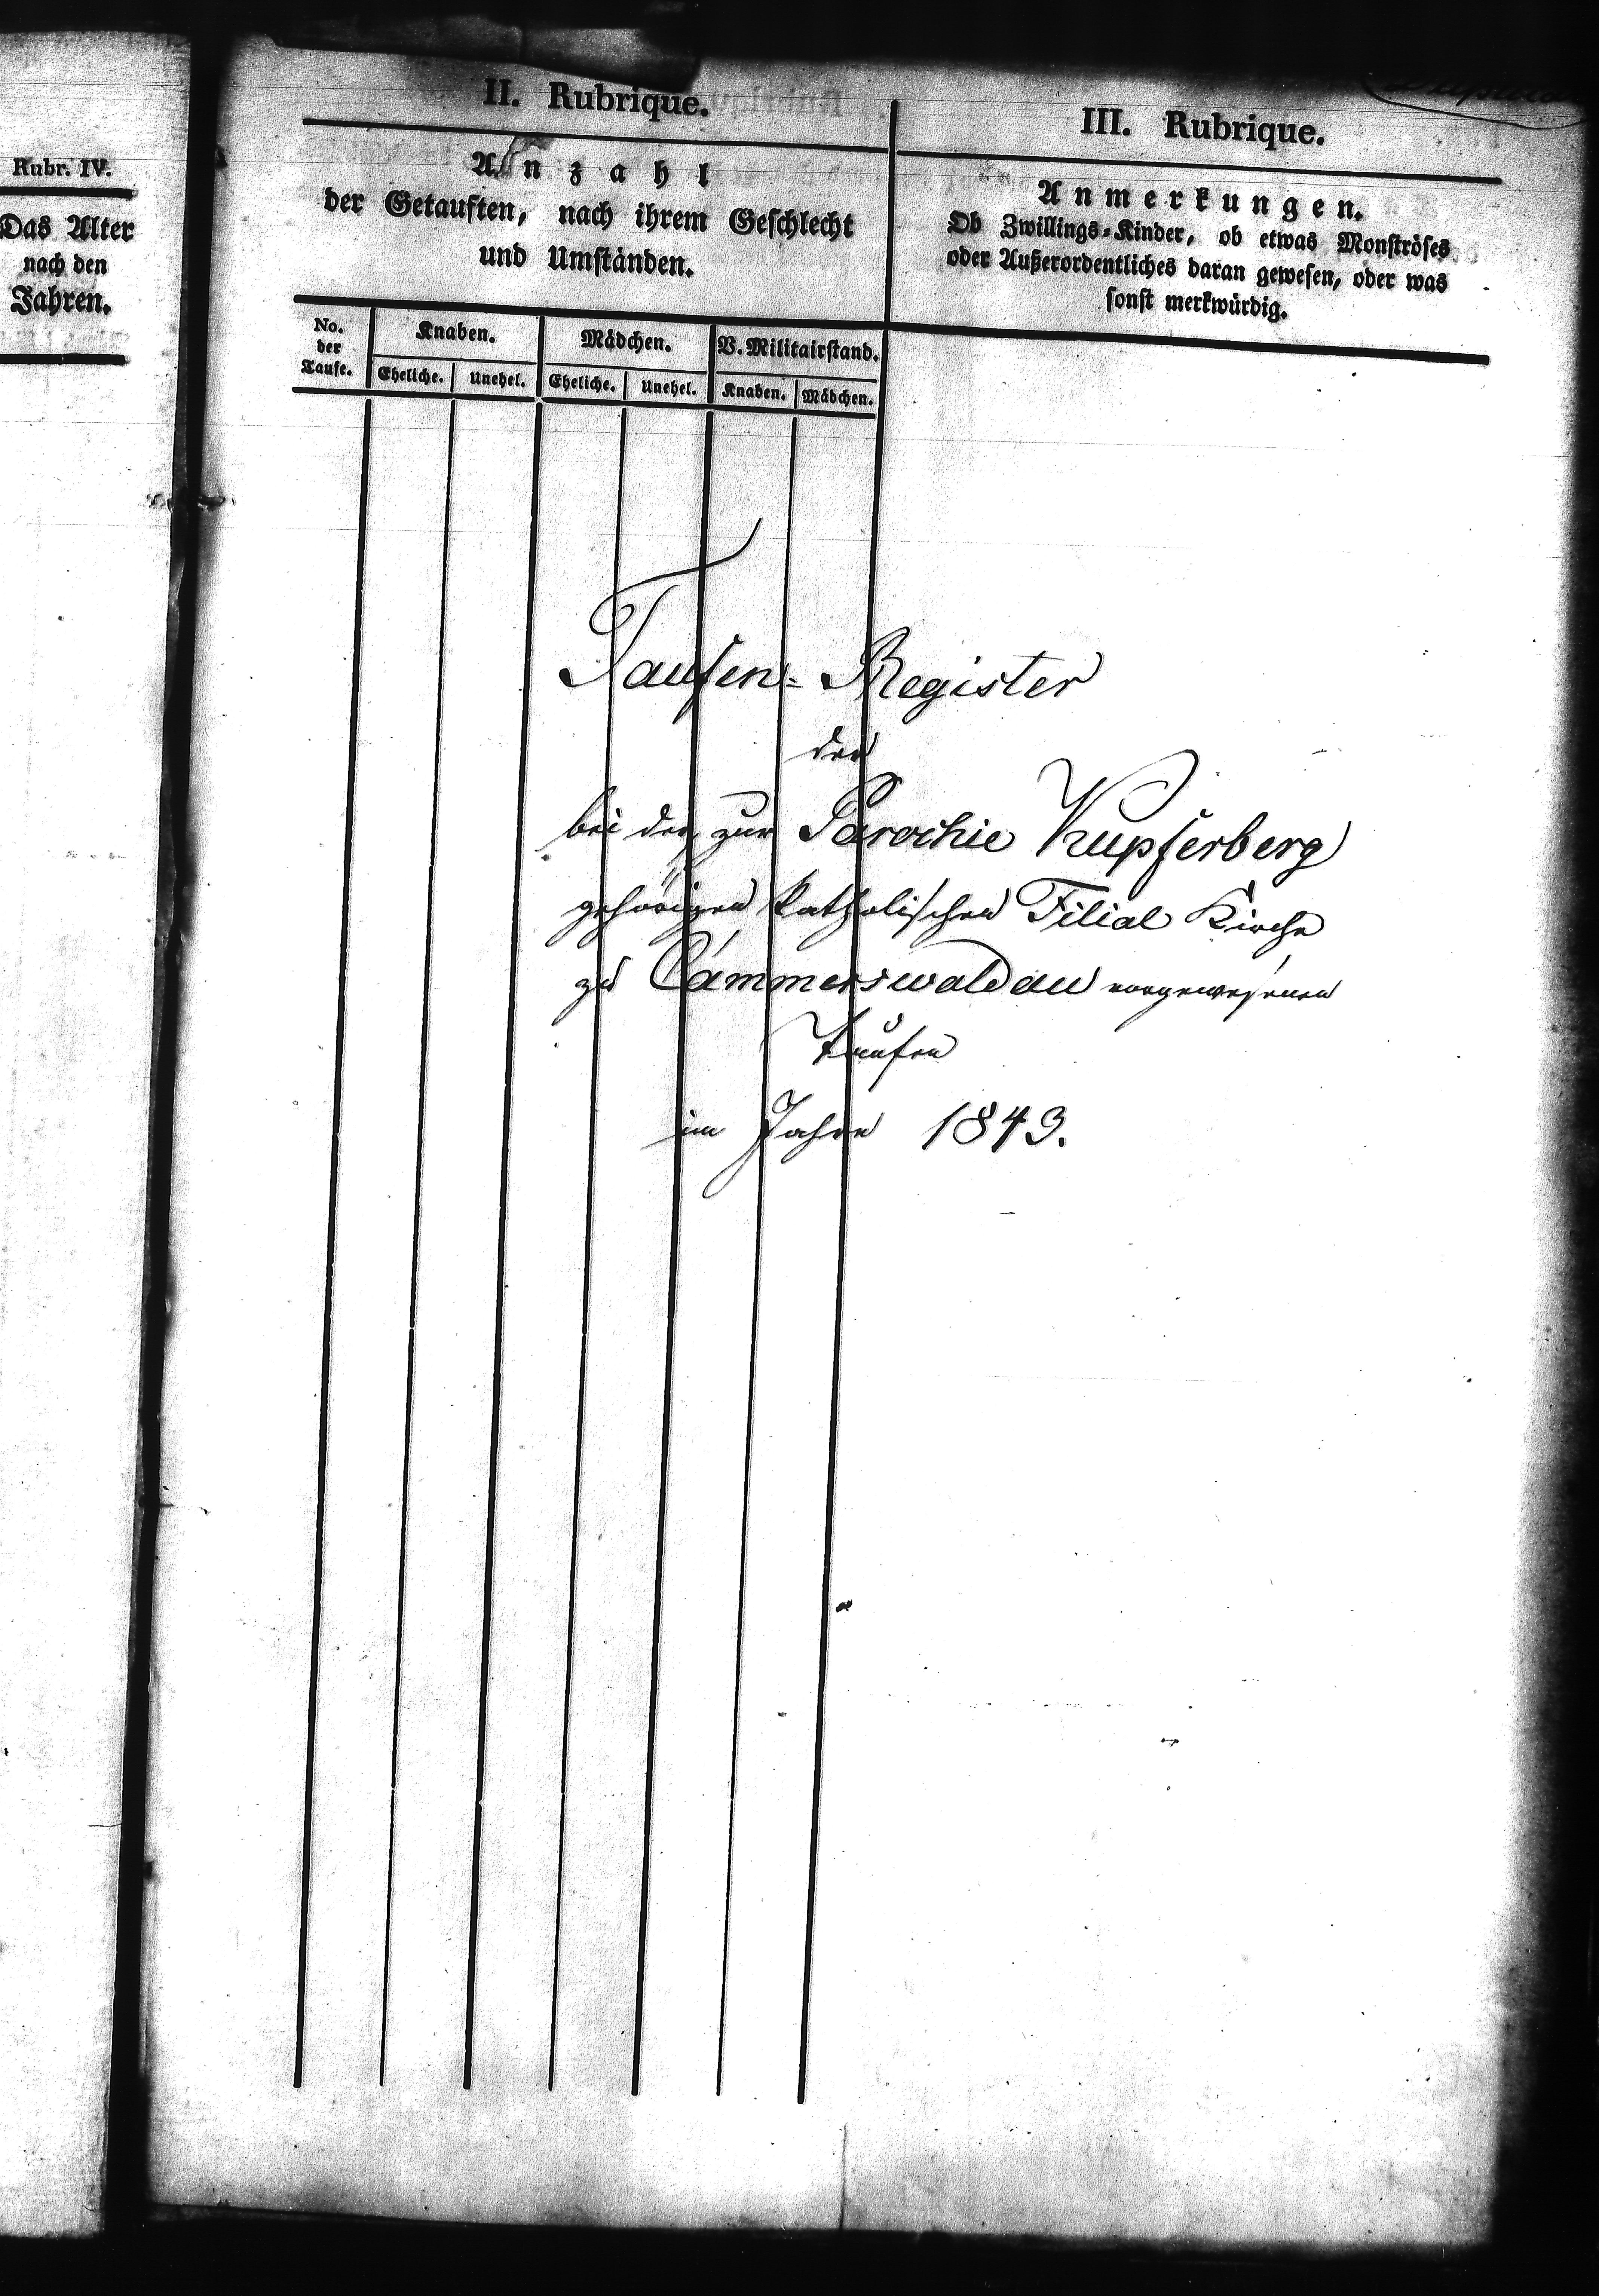 Rubr. IV.
Das Alter
nach den
Jahren.
II. Rubrique.
Anzahl
der Getauften, nach ihrem Geschlecht
und Umständen.
III. Rubrique.
Anmerkungen.
Ob Zwillings-Kinder, ob etwas Monströses
oder Außerordentliches daran gewesen, oder was
sonst merkwürdig.
No.
der
Taufe.
Knaben.
Eheliche. Unehel.
Mädchen.
Eheliche. Unehel.
V. Militairstand.
Knaben. Mädchen.
Taufen-Register
der
bei der zur Parochie Kupferberg
gehörigen katholischen Filial Kirche
zu Cammerswaldau vorgewesenen
Taufen
im Jahre 1843.